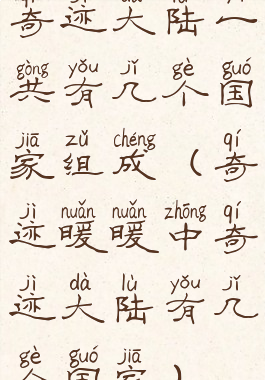 奇迹大陆一
gòng yǒu jǐ gè guó
共有几个国
jiā zǔ chéng qí
家组成（奇
jì nuǎn nuǎn zhōng qí
迹暖暖中奇
jì dà lù yǒu jǐ
迹大陆有几
gè guó jiā
个国家）